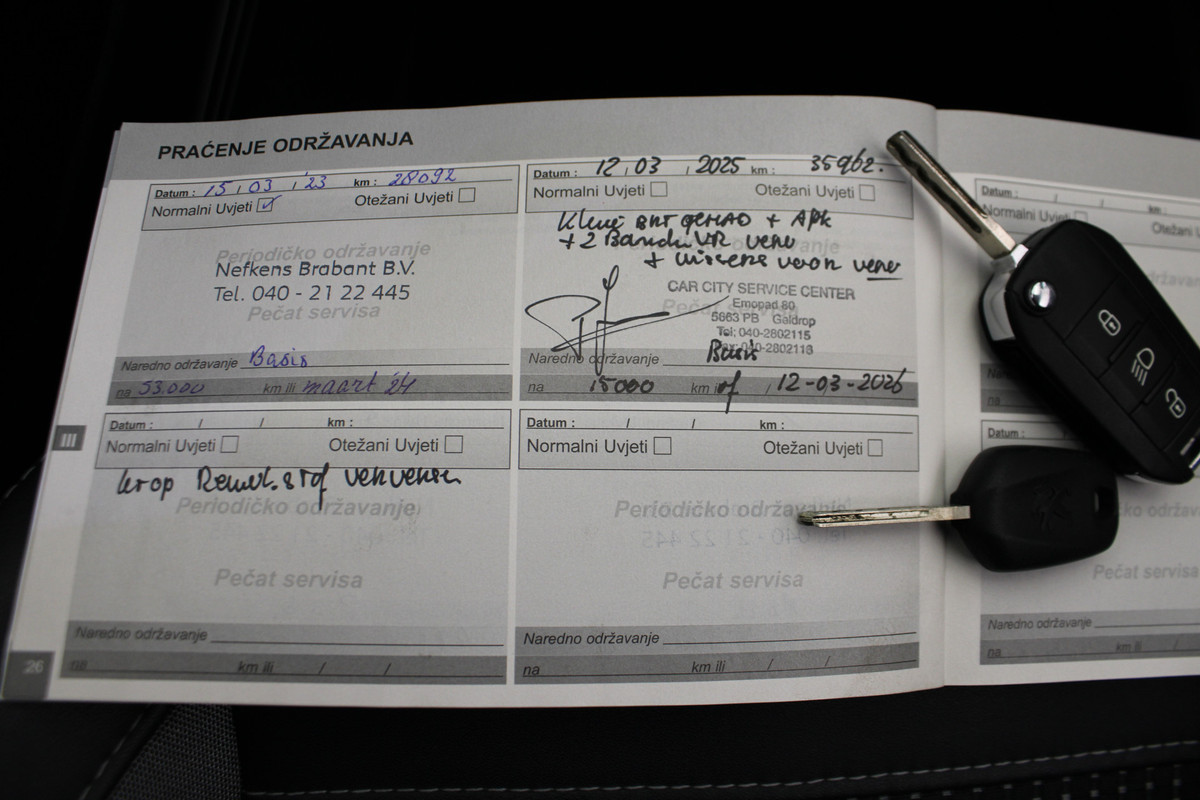 PRAĆENJE ODRŽAVANJA
Datum : 15 / 03 / '23 km : 28092
Normalni Uvjeti Otežani Uvjeti
Periodičko održavanje
Nefkens Brabant B.V.
Tel. 040 - 21 22 445
Pečat servisa
Naredno održavanje Basis
na 53.000 km ili maart '24
Datum : 12 / 03 / 2025 km : 35962.
Normalni Uvjeti Otežani Uvjeti
+ APK
+ 2
+
CAR CITY SERVICE CENTER
Emopad 80
5663 PB Geldrop
Tel: 040-2802115
Fax: 040-2802118
Naredno održavanje Basis
na 15000 km ili of / 12-03-2026
Datum : / / km :
Normalni Uvjeti Otežani Uvjeti
Periodičko održavanje
Pečat servisa
Naredno održavanje
na km ili / /
Datum : / / km :
Normalni Uvjeti Otežani Uvjeti
Periodičko održavanje
Pečat servisa
Naredno održavanje
na km ili / /
III
26
Datum : / km :
Normalni Uvjeti Otežani U
Datum :
Pečat servisa
Naredno održavanje
na km ili /